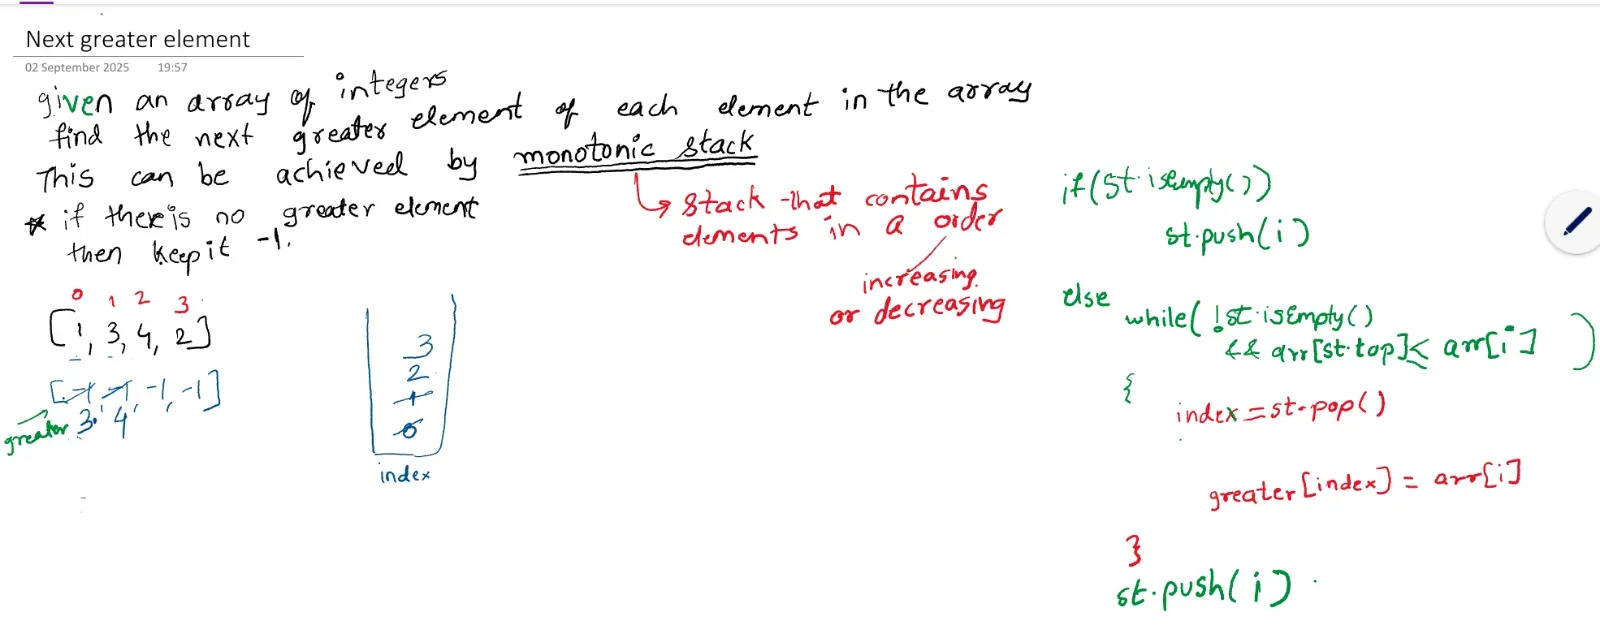 Next greater element
02 September 2025 19:57
given an array of integers
find the next greater element of each element in the array
This can be achieved by monotonic stack
* if there is no greater element
then keep it -1.
stack that contains
elements in a order
increasing
or decreasing
0 1 2 3
[1, 3, 4, 2]
[-1, -1, -1, -1]
greater 3, 4
3
2
1
0
index
if(st.isEmpty())
st.push(i)
else
while( !st.isEmpty()
&& arr[st.top]< arr[i] )
{
index = st.pop()
greater[index] = arr[i]
}
st.push(i)